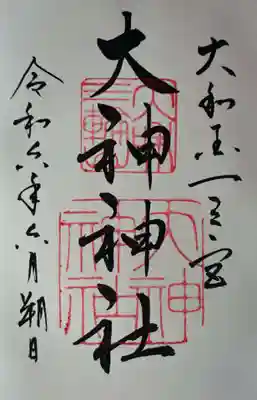 大和国一之宮
大神神社
令和六年六月朔日